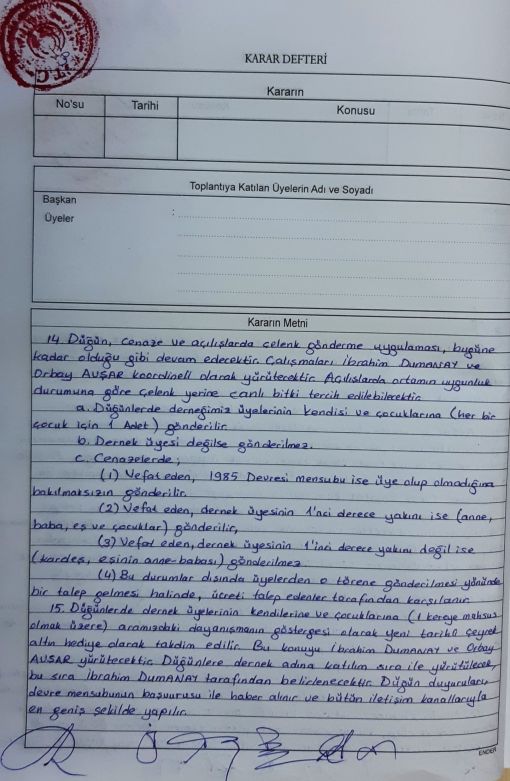 KARAR DEFTERİ
Kararın
No'su Tarihi Konusu
Toplantıya Katılan Üyelerin Adı ve Soyadı
Başkan :
Üyeler
Kararın Metni
14. Düğün, cenaze ve açılışlarda çelenk gönderme uygulaması, bugüne
kadar olduğu gibi devam edecektir. Çalışmaları İbrahim DUMANAY ve
Orbay AVŞAR koordineli olarak yürütecektir. Açılışlarda ortamın uygunluk
durumuna göre çelenk yerine canlı bitki tercih edilebilecektir.
a. Düğünlerde derneğimiz üyelerinin kendisi ve çocuklarına (her bir
çocuk için 1 Adet) gönderilir.
b. Dernek üyesi değilse gönderilmez.
c. Cenazelerde;
(1) Vefat eden, 1985 Devresi mensubu ise üye olup olmadığına
bakılmaksızın gönderilir.
(2) Vefat eden, dernek üyesinin 1'nci derece yakını ise (anne,
baba, eş ve çocuklar) gönderilir,
(3) Vefat eden, dernek üyesinin 1'inci derece yakını değil ise
(kardeş, eşinin anne-babası) gönderilmez
(4) Bu durumlar dışında üyelerden o törene gönderilmesi yönünde
bir talep gelmesi halinde, ücreti talep edenler tarafından karşılanır.
15. Düğünlerde dernek üyelerinin kendilerine ve çocuklarına (1 kereye mahsus
olmak üzere) aramızdaki dayanışmanın göstergesi olarak yeni tarihli çeyrek
altın hediye olarak takdim edilir. Bu konuyu İbrahim DUMANAY ve Orbay
AVŞAR yürütecektir. Düğünlere dernek adına katılım sıra ile yürütülecek,
bu sıra İbrahim DUMANAY tarafından belirlenecektir. Düğün duyuruları
devre mensubunun başvurusu ile haber alınır ve bütün iletişim kanallarıyla
en geniş şekilde yapılır.
ENDER